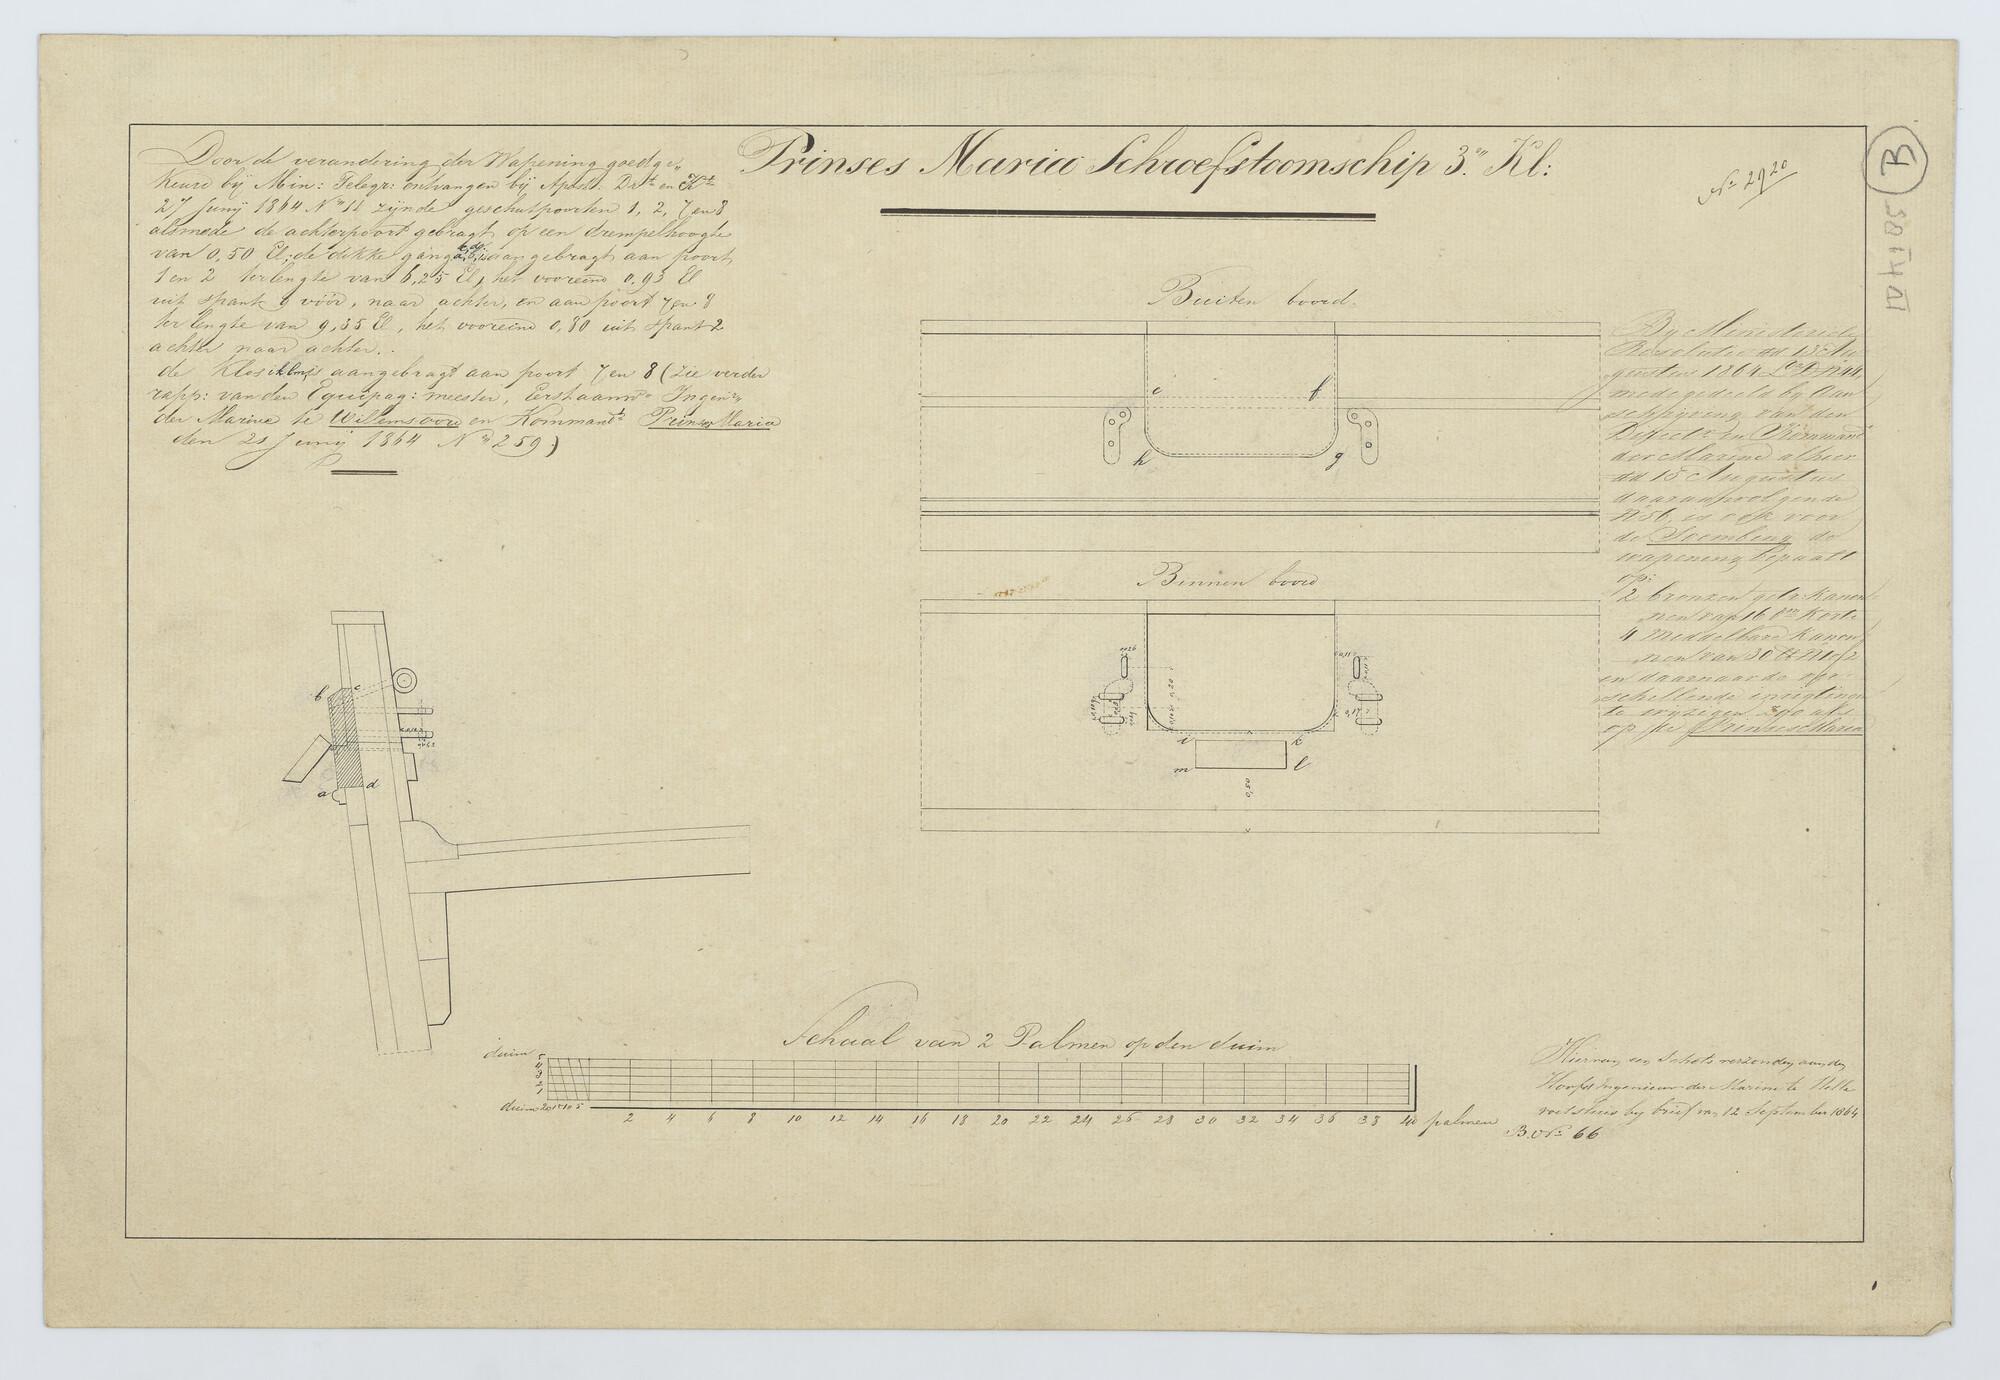 Prinses Maria Schroefstoomschip 3.e Kl:
No 2920
B
Door de verandering der Wapening goedge„
keurd bij Min: Telegr: ontvangen bij Apost. Dr en Kt
27 Junij 1864 No 11 zijnde geschutpoorten 1, 2, 7 en 8
alsmede de achterpoort gebragt op een drempelhoogte
van 0,50 El; de dikke gang a,b,c,d, is aangebragt aan poort
1 en 2 ter lengte van 6,25 El, het vooreind 0,93 El
uit spant 9 vóór, naar achter, en aan poort 7 en 8
ter lengte van 9,35 El, het vooreind 0,80 uit spant 2
achter naar achter.
de Klos iklm is aangebragt aan poort 7 en 8 (zie verder
rapp: van den Equipag: meester, Eerstaanw Ingenr
der Marine te Willemsoord en Kommandt Prinses Maria
den 21 Junij 1864 No 259)
Buiten boord
e f
h g
Binnen boord
i k
m l
0,50
b c
a d
By Ministerieele
Resolutie dd 13 Au
gustus 1864 No 44,
medegedeeld by Aan
schryving van den
Direct en Kommandt
der Marine alhier
dd 15 Augustus
daaraanvolgende
No 56, is ook voor
de Soembing de
wapening bepaalt
op:
2 bronzen getr: kanon
nen van 16 korte
4 Middelbare kanon
nen van 30 No 2
en daarnaar de
schillende inrigtingen
te wyzigen zoo als
op de Prinses Maria
Schaal van 2 Palmen op den duim
duim 5
4
3
2
1
duim 20 15 10 5 2 4 6 8 10 12 14 16 18 20 22 24 26 28 30 32 34 36 38 40 palmen
Hiervan een Schets verzonden aan den
Hoofd Ingenieur der Marine te Helle
voetsluis by brief van 12 September 1864
B. No 66